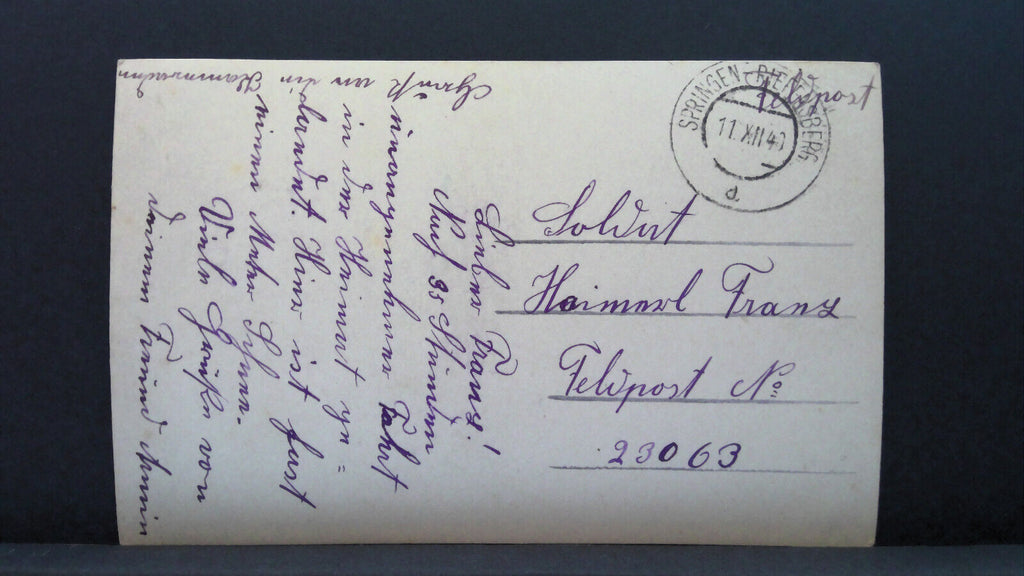 Feldpost
SPRINGEN - RIE BERG
11.XII.4
d
Soldat
Haimerl Franz
Feldpost No
23063
Lieber Franz!
Nach 35 Stunden
unangenehmer Fahrt
in der Heimat ge=
landet. Hier ist fast
einen Meter Schnee.
Viele Grüße von
deinem Freund
Gruß an die Kammeraden